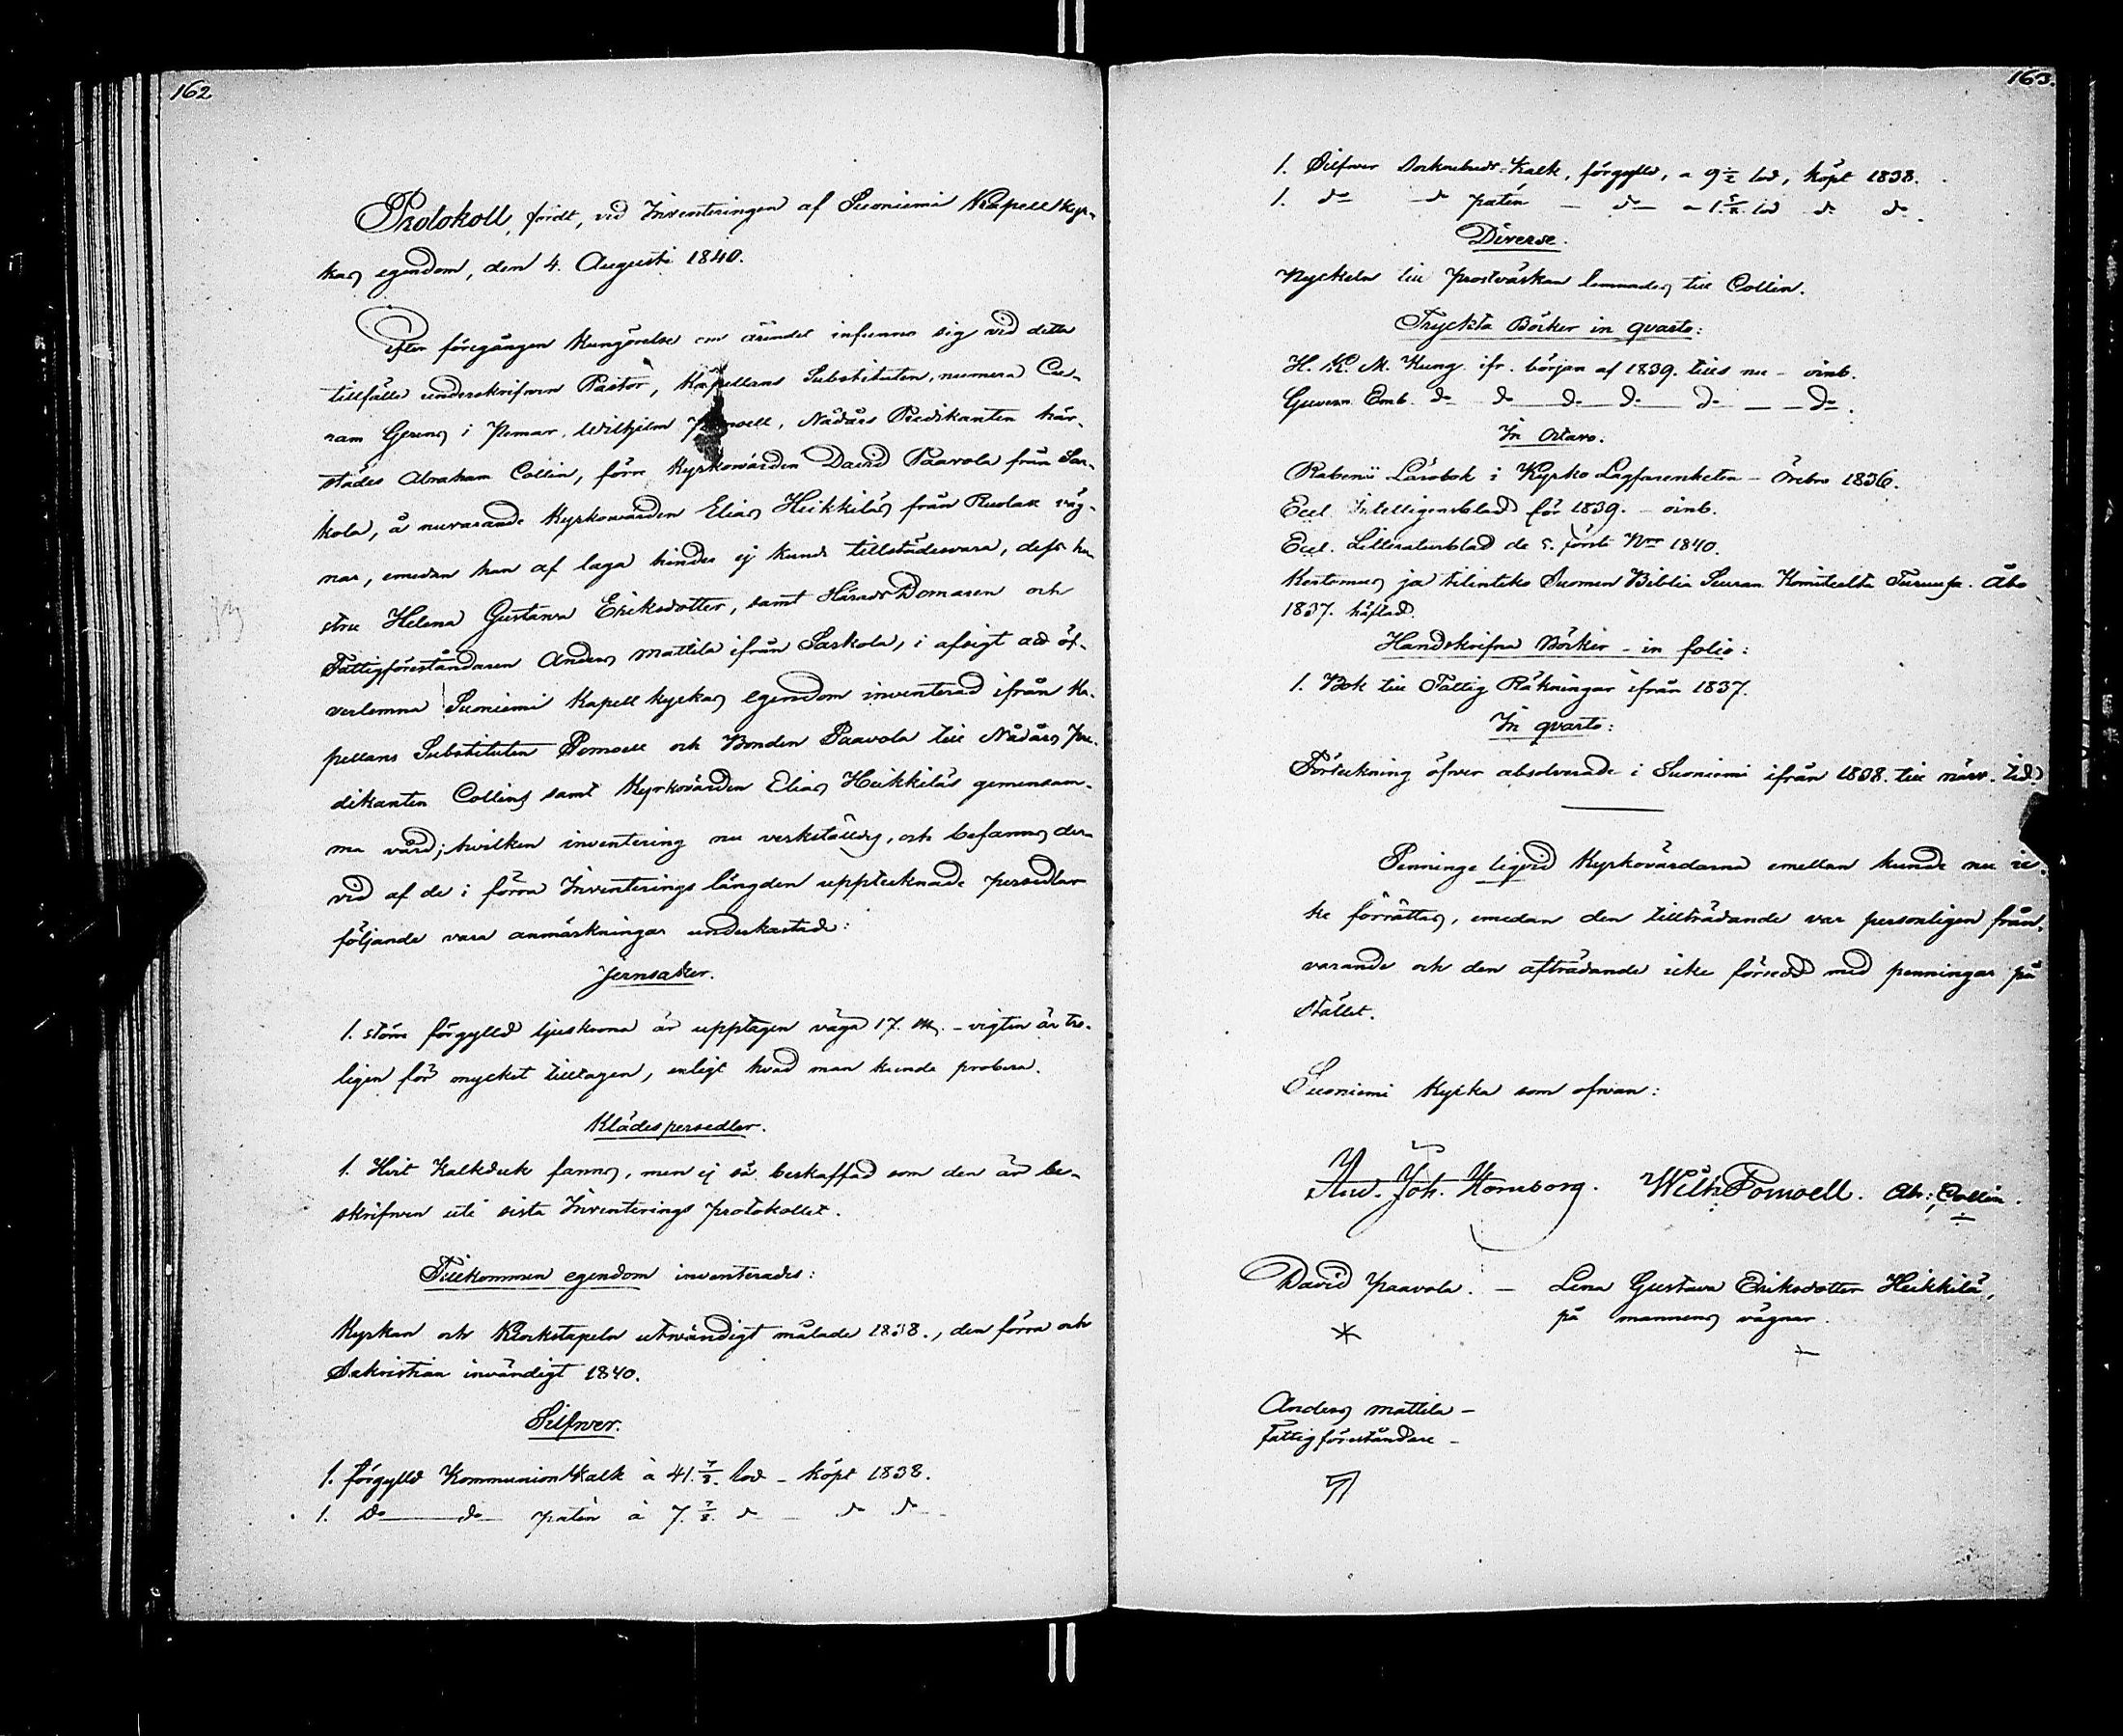 162
Protokoll, fördt, vid Inventeringen af Suoniemi Kapell kyr-
kas egendom, den 4. Augusti 1840.
Efter föregången kungörelse om ärendet infunno sig vid detta
tillfälle underskrifven Pastor, Kapellans Substituten, numera Cu-
ram Gerens i Pemar, Wilhelm Pomoell, Nådårs Predikanten här-
städes Abraham Collin, förre Kyrkovärden David Paavola från Sar-
kola, å nuvarande Kyrkovärden Elias Heikkiläs från Ruolax väg-
nar, emedan han af laga hinder ej kunde tillstädesvara, dess hu-
stru Helena Gustava Eriksdotter, samt HäradsDomaren och
Fattigföreståndaren Anders Mattila ifrån Sarkola, i afsigt att öf-
verlemna Suoniemi Kapell kyrkas egendom inventerad ifrån Ka-
pellans Substituten Pomoell och Bonden Paavola till Nådårs Pre-
dikanten Collins samt Kyrkovärden Elias Heikkiläs gemensam-
ma vård; hvilken inventering nu verkställdes, och befanns der-
vid af de i förra Inventerings längden upptecknade persedlar
följande vara anmärkningar underkastade:
Jernsaker.
1. större förgylld ljuskrona är upptagen väga 17. m. - vigten är tro-
ligen för mycket tilltagen, enligt hvad man kunde probera.
Klädespersedlar.
1. Hvit Kalkduk fanns, men ej så beskaffad som den är be-
skrifven uti sista Inventerings protokollet.
Tillkommen egendom inventerades:
Kyrkan och Klockstapeln utvändigt målade 1838., den förra och
Sakristian invändigt 1840.
Silfwer.
1. förgylld Kommunion Kalk à 41. 7/8. lod - köpt 1838.
1. do do patén à 7. 7/8. do - do do -
163.
1. Silfwer Sockenbuds-Kalk, förgylld, a 9 1/2 lod, köpt 1838.
1. do do patén - do - a 1. 5/8. lod do do.
Diverse.
Nyckeln till prostväskan lemnades till Collin.
Tryckta Böcker in qvarto:
H. K. M. Kung. ifr. början af 1839. tills nu - oinb.
Guvern. Emb. do do do do do - do.
In Octavo.
Rabenii Lärobok i Kyrko Lagfarenheten - Örebro 1836.
Eccl. Intelligensblad för 1839. - oinb.
Eccl. Litteraturblad de 5. första Nrr 1840.
Kertomus ja tilinteko Suomen Biblia Seuran Komiteelta Turussa. Åbo
1837. häftad.
Handskrifna Böcker - in folio:
1. Bok till Fattig Räkningar ifrån 1837.
In qvarto:
Förteckning öfver absolverade i Suoniemi ifrån 1838. till närv. tid.
Penninge liqvid Kyrkovärdarna emellan kunde nu ic-
ke förrättas, emedan den tillträdande var personligen från-
varande och den afträdande icke försedd med penningar på
stället.
Suoniemi Kyrka som ofvan:
And. Joh. Hornborg. Wilh. Pomoell. Ab: Collin.
David Paavola. - Lena Gustava Eriksdotter Heikkilä,
på mannens vägnar.
Anders Mattila -
Fattigföreståndare -